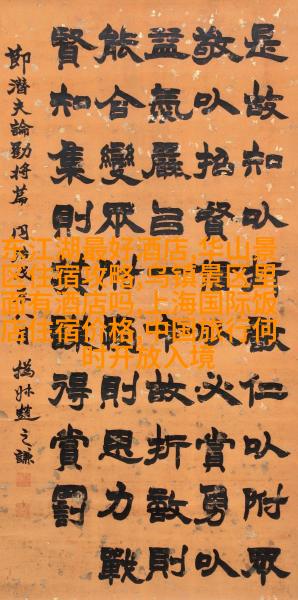 是故知以仁以附眾
敬以招賢必賞勇以
益氣嚴㠯故折敵則
能合變眾附思力戰
賢知集則得賞罰
節潛夫論勸將篇 同治 撝叔趙之謙
东江湖最好酒店,华山景
区住宿攻略,乌镇景区里
面有酒店吗,上海国际饭
店住宿价格,中国旅行何
时开放入境